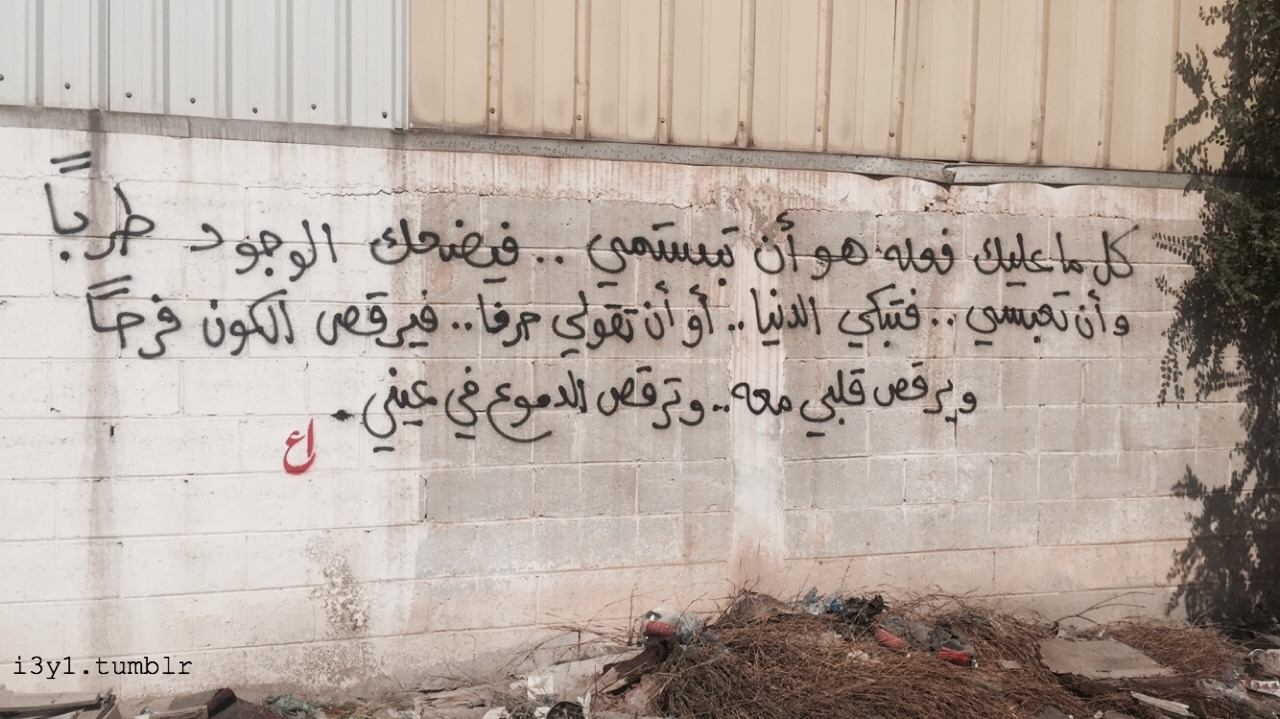 كل ما عليك فعله هو أن تبستمي .. فيضحك الوجود طرباً
وأن تعبسي .. فتبكي الدنيا .. أو أن تقولي حرفا .. فيرقص الكون فرحاً
ويرقص قلبي معه .. وترقص الدموع في عيني .
اع
i3y1.tumblr